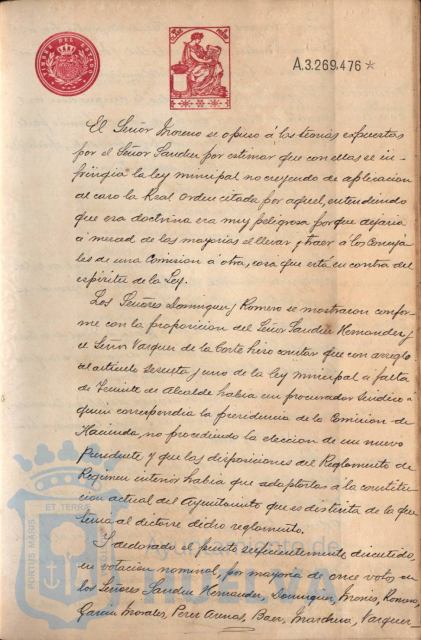 TIMBRE DEL ESTADO
A.3.269,476
El Señor Moreno se opuso á las teorias expuestas
por el Señor Sandie por estimar que con ellas se in-
fringia la ley municipal no creyendo de aplicacion
al caso la Real Orden citada por aquel, entendiendo
que esa doctrina era muy peligrosa porque dejaria
á merced de las mayorias el llevar y traer á los Conceja-
les de una Comision á otra, cosa que está en contra del
espiritu de la Ley.
Los Señores Dominguez y Romero se mostraron confor-
me con la proposicion del Señor Sandie Hernandez y
el Señor Vazquez de la Corte hizo constar que con arreglo
al articulo sesenta y uno de la ley municipal á falta
de Teniente de Alcalde habia un procurador Sindico á
quien correspondia la presidencia de la Comision de
Hacienda, no procediendo la eleccion de un nuevo
Presidente y que las disposiciones del Reglamento de
Regimen interior habia que adaptarlas á la constitu-
cion actual del Ayuntamiento que es distinta de la que
tenia al dictarse dicho reglamento.
Y declarado el punto suficientemente discutido,
en votacion nominal, por mayoria de once votos en
los Señores Sandie Hernandez, Dominguez, Monis, Romero,
Garcia Morales, Perez Arenas, Baez, Marchena, Vazquez
PORTUS MARIS ET TERRÆ
Ayuntamiento de
HUELVA